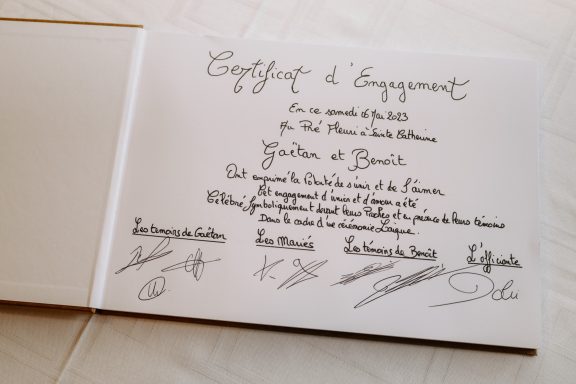 Certificat d'Engagement
En ce samedi 06 Mai 2023
Au Pré Fleuri à Sainte Catherine
Gaëtan et Benoît
Ont exprimé la Volonté de s'unir et de S'aimer
Cet engagement d'union et d'amour a été
Célébré Symboliquement devant leurs Proches et en présence de leurs témoins
Dans le cadre d'une cérémonie Laïque.
Les temoins de Gaëtan Les Mariés Les témoins de Benoît L'officiante